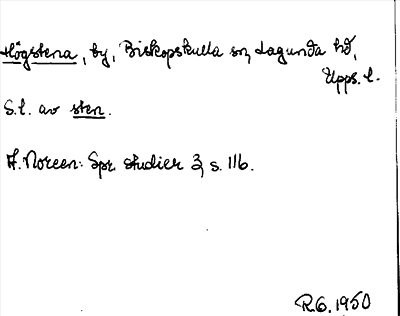 Högstena, by, Biskopskulla sn, Lagunda hd,
Upps. l.
S.l. av sten.
A. Noreen: Spr. studier 3, s. 116.
R.G. 1950